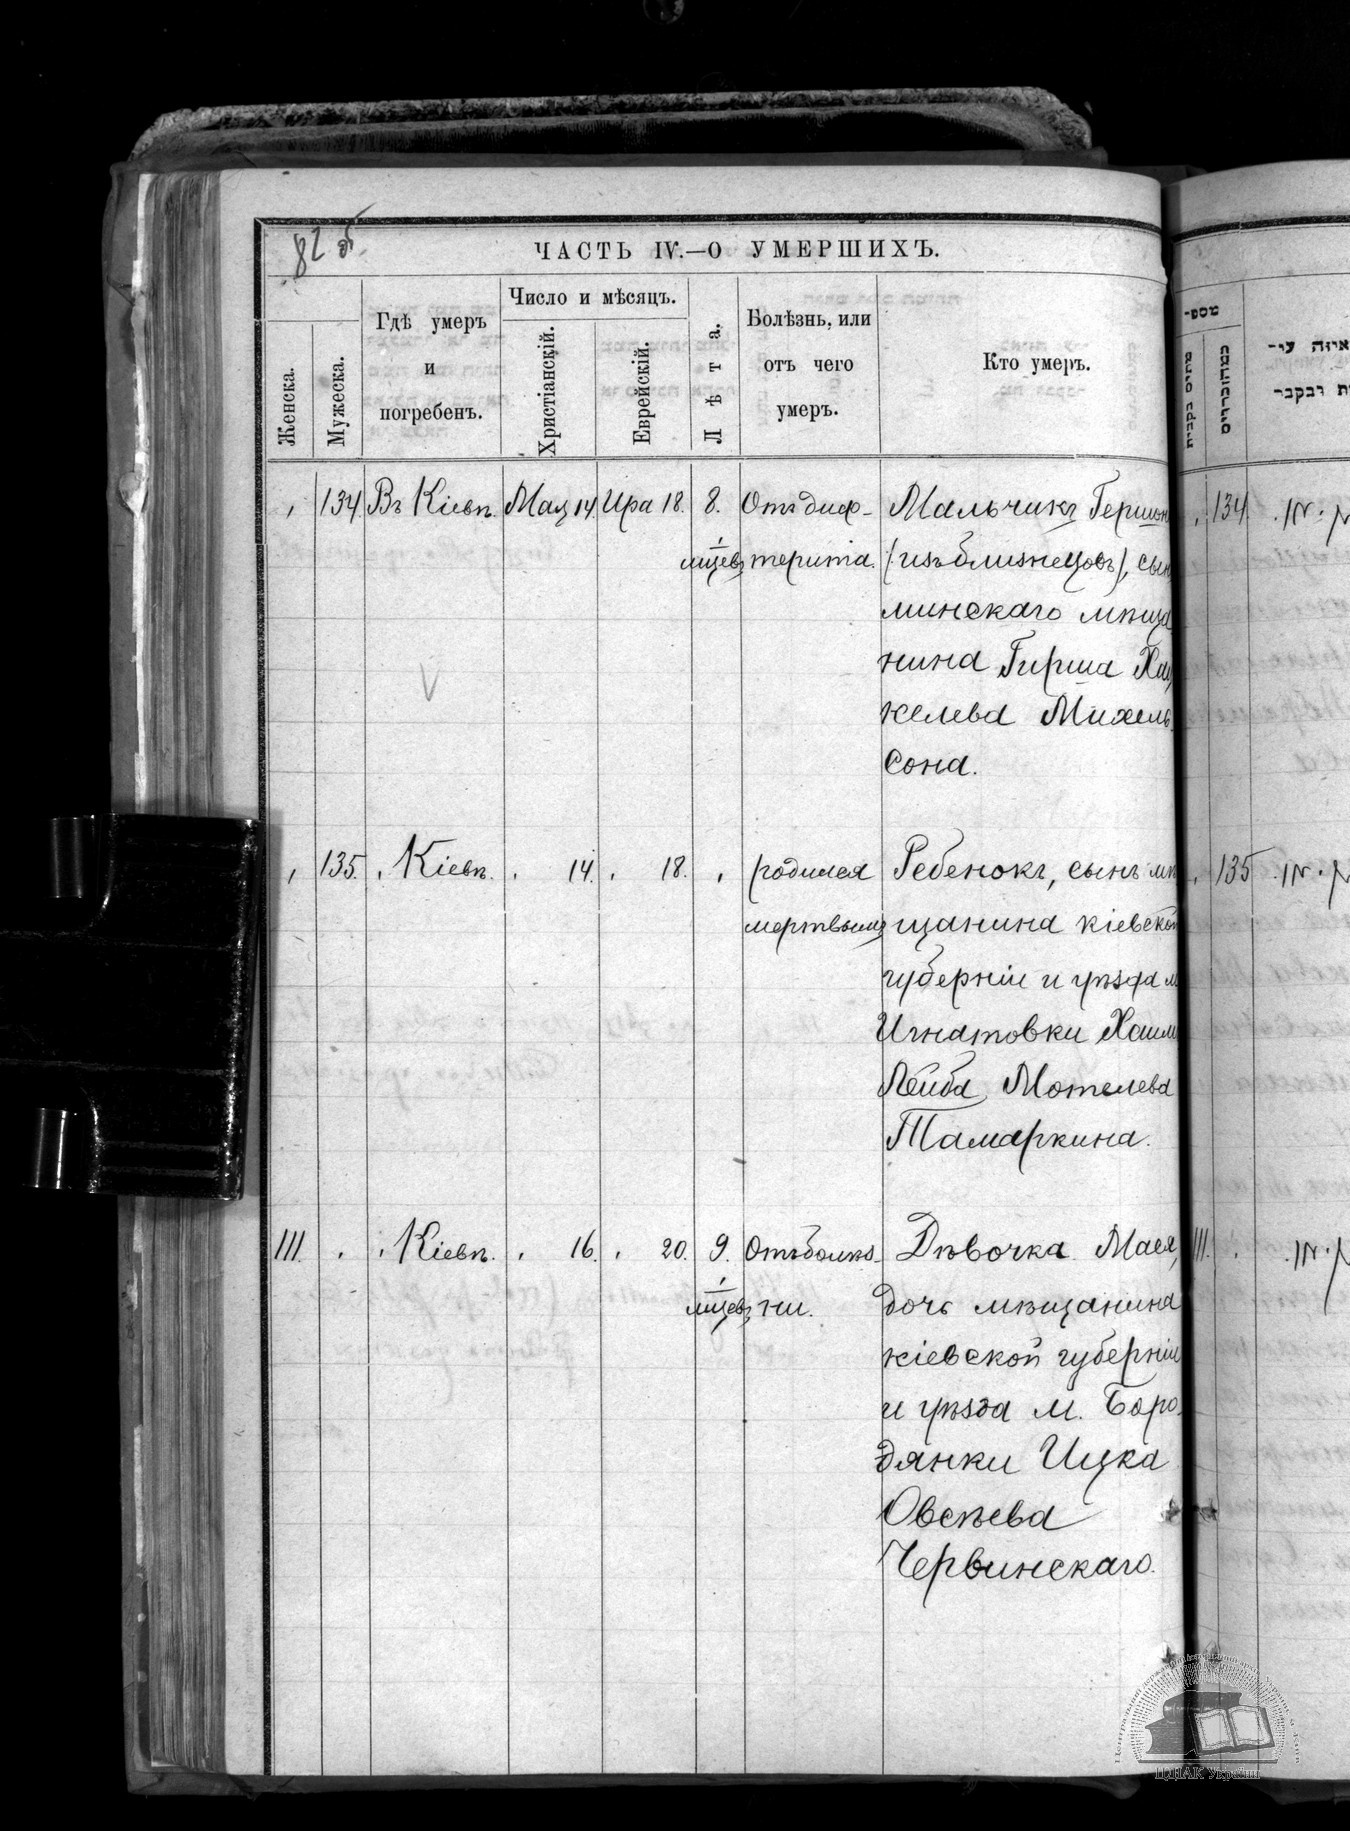 82 об.
ЧАСТЬ IV.—О УМЕРШИХЪ.
Женска.
Мужеска.
Гдѣ умеръ
и
погребенъ.
Число и мѣсяцъ.
Христіанскій.
Еврейскій.
Лѣта.
Болѣзнь, или
отъ чего
умеръ.
Кто умеръ.
134. Въ Кіевѣ. Мая 14. Ира 18. 8. Отъ диф- Мальчикъ Гершон
мѣсяцевъ терита. (изъ близнецовъ), сын
минскаго мѣща
нина Гирша Хац
келева Михель-
сона.
135. " Кіевѣ. " 14. " 18. " родился Ребенокъ, сынъ мѣ
мертвымъ щанина кіевской
губерніи и уѣзда м
Игнатовки Хаим
Лейба Мотелева
Тамаркина.
111. " " Кіевѣ. " 16. " 20. 9. Отъ болѣз- Дѣвочка Мася,
мѣсяцевъ ни. дочь мѣщанина
кіевской губерніи
и уѣзда м. Боро-
дянки Ицка
Овсѣева
Червинскаго.
מספ־
134
135
111.
ЦДІАК України